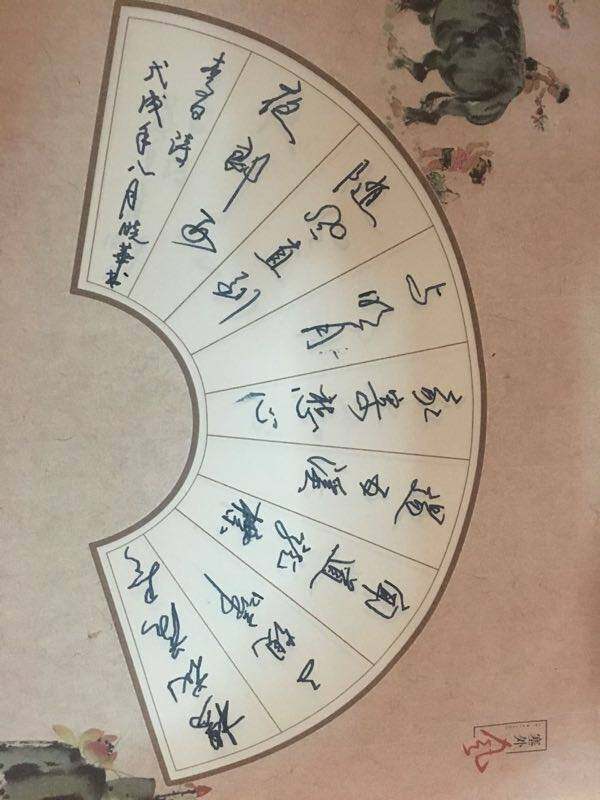 楊花落尽
子规啼
闻道龙標
過五溪
我寄愁心
与明月
随君直到
夜郎西
李白诗
戊戌年八月晓華书
塞外
风